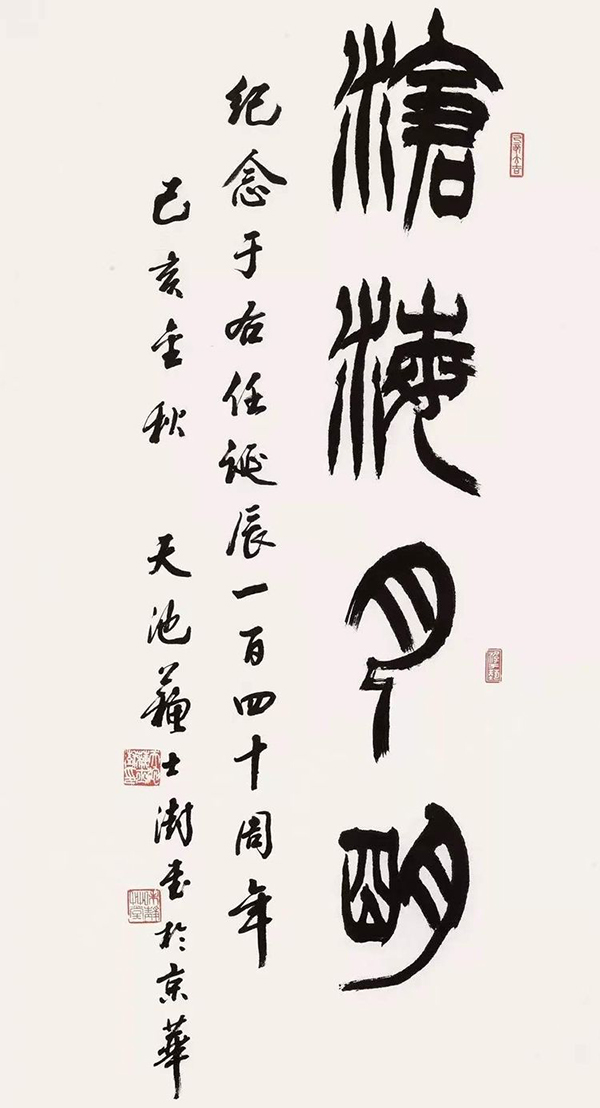 滄海月明
紀念于右任誕辰一百四十周年
己亥金秋 天池蘇士澍書於京華